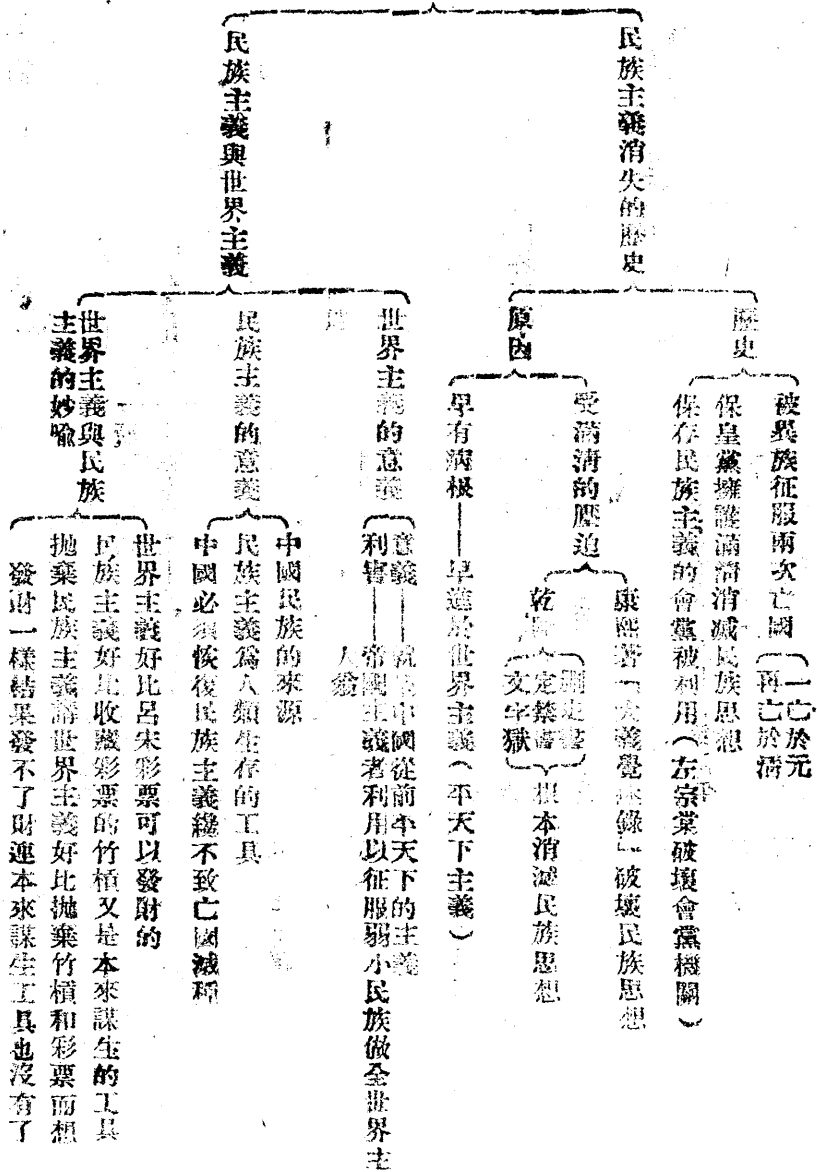 民族主義消失的歷史
歷史
被異族征服兩次亡國
一亡於元
再亡於清
保皇黨擁護滿清消滅民族思想
保存民族主義的會黨被利用(左宗棠破壞會黨機關)
原因
受滿清的壓迫
康熙著「大義覺 錄」破壞民族思想
乾隆 定禁書
刪史書
文字獄
根本消滅民族思想
早有病根——早進於世界主義(平天下主義)
民族主義與世界主義
世界主義的意義
意義——就是中國從前平天下的主義
利害——帝國主義者利用以征服弱小民族做全世界主
人翁
民族主義的意義
中國民族的來源
民族主義爲人類生存的工具
中國必須恢復民族主義纔不致亡國滅種
世界主義與民族
主義的妙喻
世界主義好比呂宋彩票可以發財的
民族主義好比收藏彩票的竹槓又是本來謀生的工具
拋棄民族主義講世界主義好比拋棄竹槓和彩票而想
發財一樣結果發不了財連本來謀生工具也沒有了